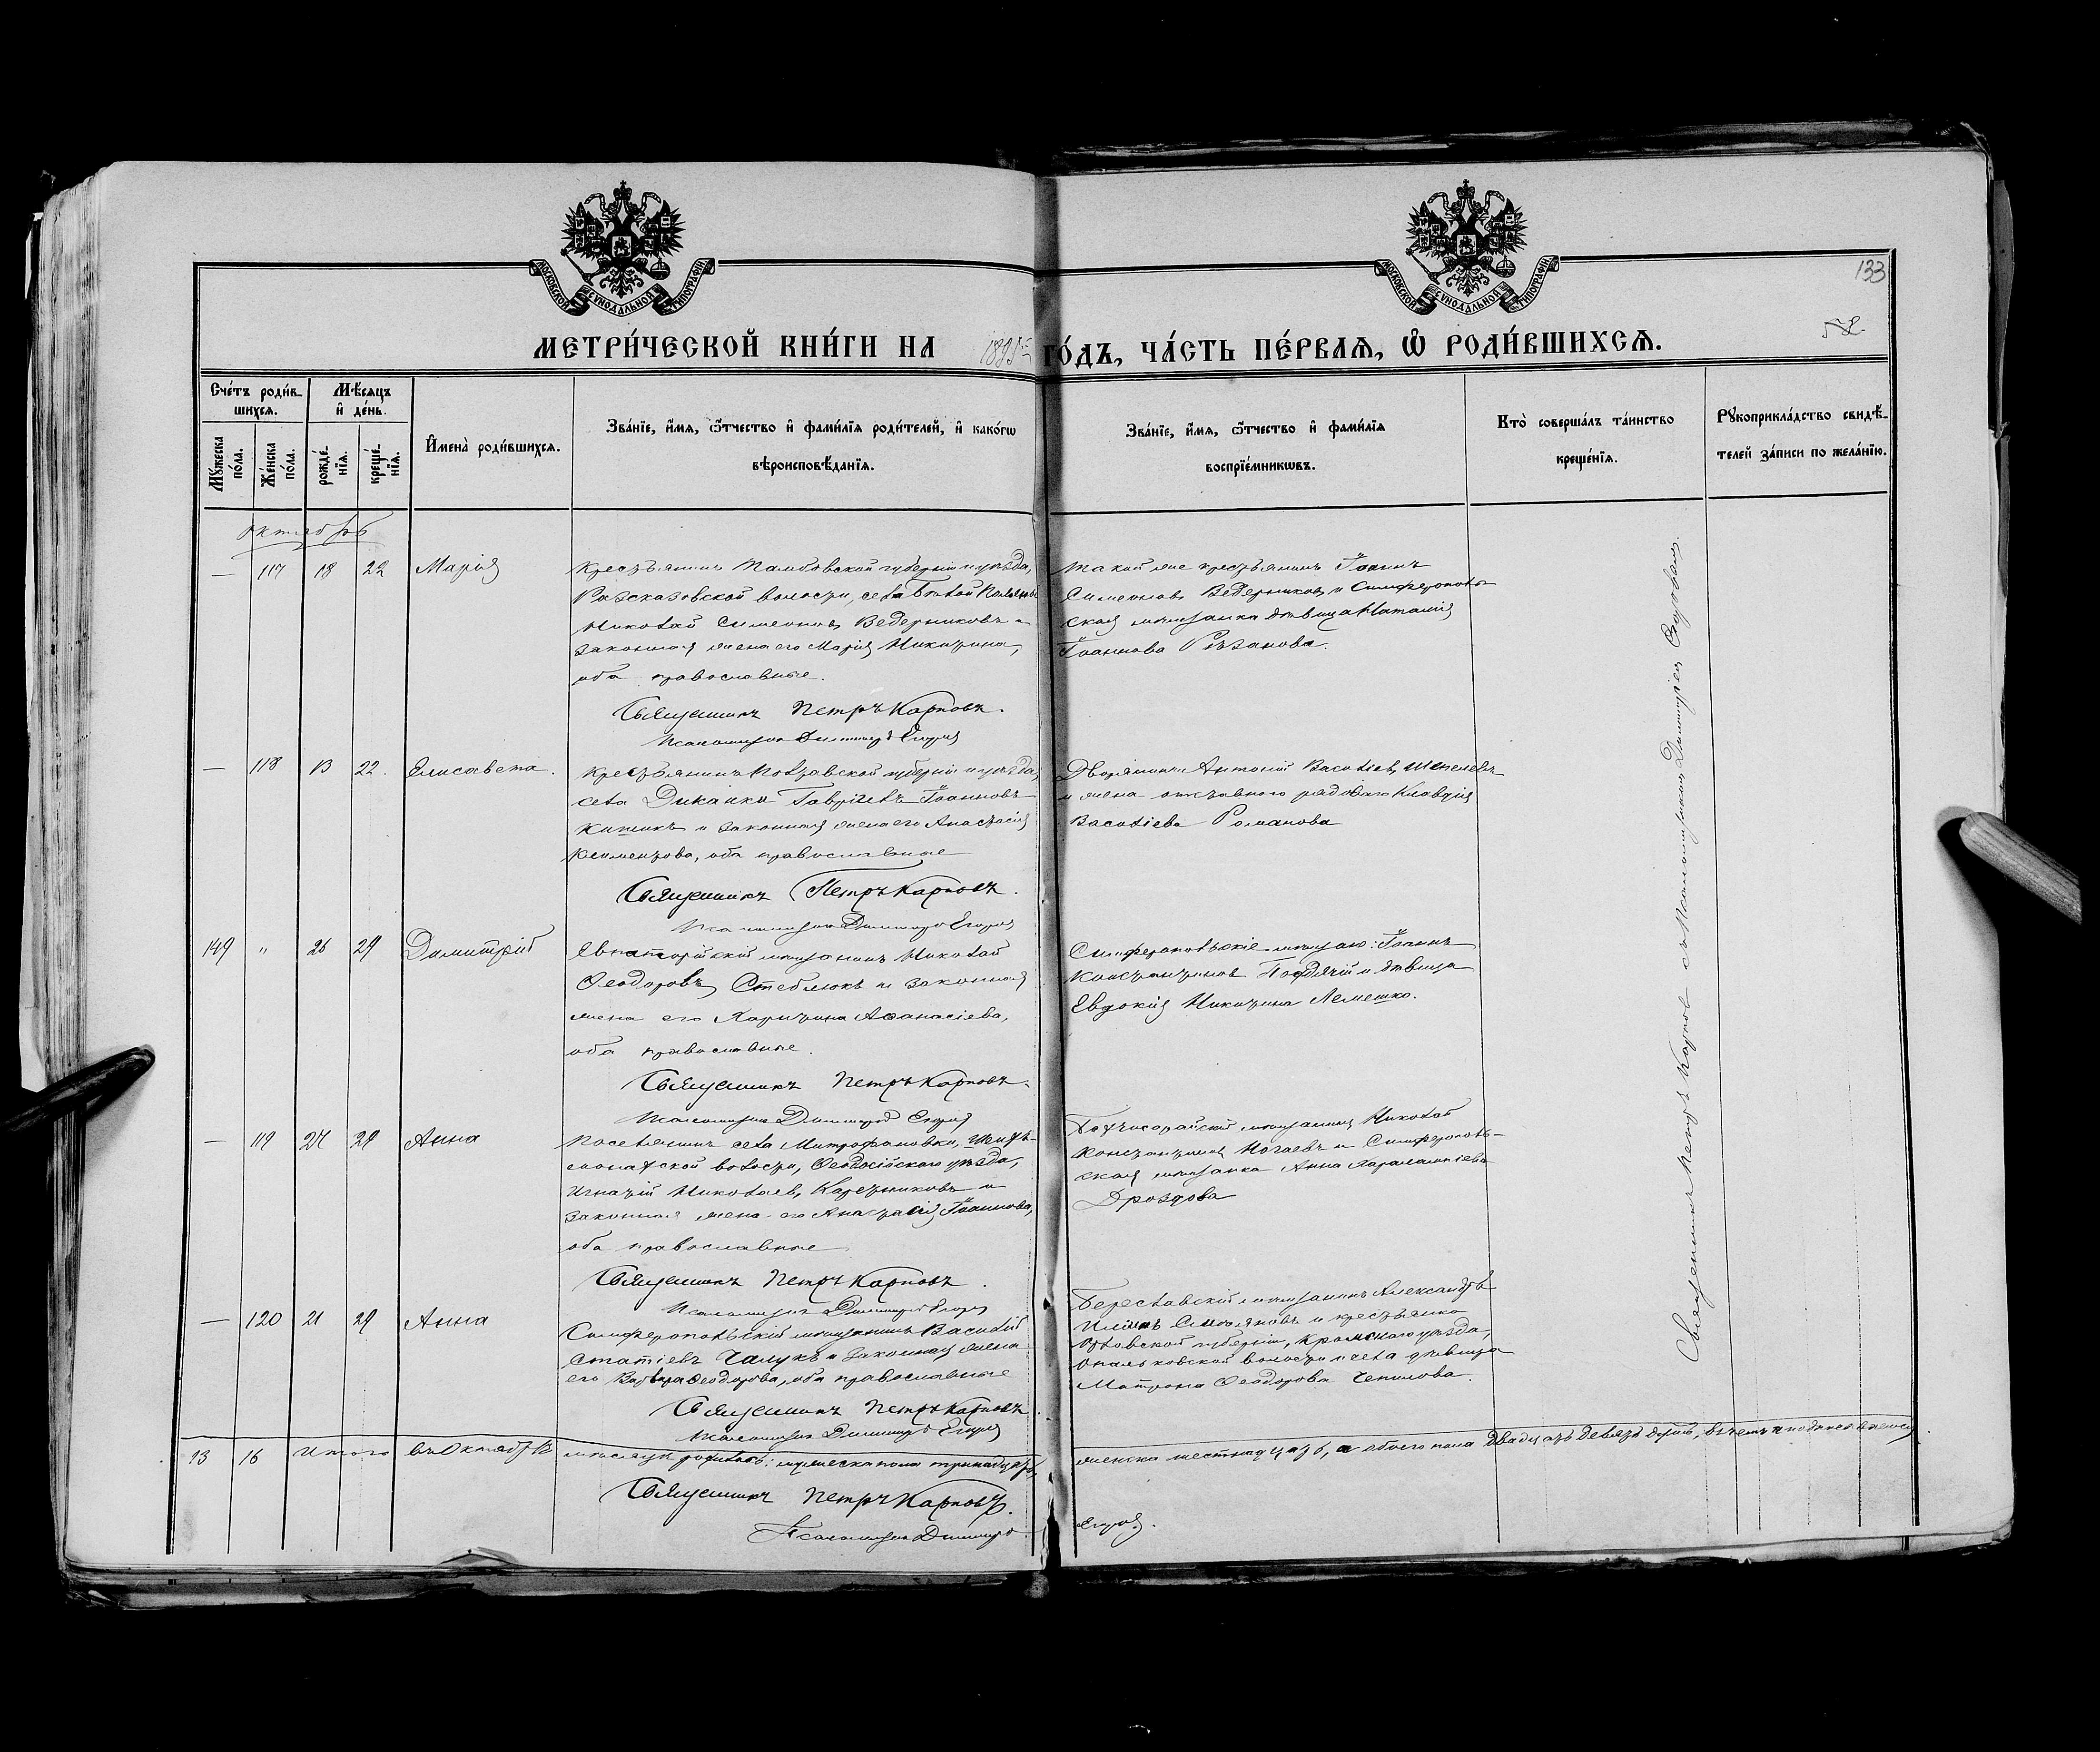 МОСКОВСКОЙ СѴНОДАЛЬНОЙ ТИПОГРАФІИ
МОСКОВСКОЙ СѴНОДАЛЬНОЙ ТИПОГРАФІИ
133
МЕТРИ́ЧЕСКОЙ КНИ́ГИ НА 1895 ГО́ДЪ, ЧА́СТЬ ПЕ́РВАѦ, Ѡ РОДИ́ВШИХСѦ.
Сче́тъ роди́вшихсѧ.
Мѣ́сяцъ и де́нь.
Мꙋжеска по́ла.
Же́нска по́ла.
рожде́нїѧ.
креще́нїѧ.
Имена̀ роди́вшихсѧ.
Зва́нїе, и́мѧ, ѿчество и фами́лїѧ роди́телей, и како́гѡ
вѣроисповѣ́данїѧ.
Зва́нїе, и́мѧ, ѿчество и фами́лїѧ
воспрїе́мникѡвъ.
Кто̀ соверша́лъ та́инство
креще́нїѧ.
Рꙋкоприкла́дство свидѣ́-
телей за́писи по жела́нїю.
Октябрь
— 117 18 22 Марія
Крестьянинъ Тамбовской губерніи и уѣзда,
Разсказовской волости, села Бѣлой Поляны
Николай Симеоновъ Ведерниковъ и
законная жена его Марія Никитина,
оба православные.
Священникъ Петръ Карповъ.
Псаломщикъ Димитрій
Такой же крестьянинъ Іоаннъ
Симеоновъ Ведерниковъ и Симферополь-
ская мѣщанка дѣвица Наталія
Іоаннова Рѣзанова.
— 118 13 22. Елисавета.
Крестьянинъ Полтавской губерніи и уѣзда,
села Диканки Гавріилъ Іоанновъ
и законная жена его Анастасія
Климентова, оба православные
Священникъ Петръ Карповъ.
Псаломщикъ Димитрій
Дворянинъ Антоній Васильевъ Шепелевъ
и жена отставного рядового Клавдія
Васильева Романова
149 " 26 29 Димитрій
Евпаторійскій мѣщанинъ Николай
Ѳеодоровъ Стеблюкъ и законная
жена его Харитина Аѳанасіева,
оба православные.
Священникъ Петръ Карповъ.
Псаломщикъ Димитрій
Симферопольскіе мѣщане: Іоаннъ
Константиновъ и дѣвица
Евдокія Никитина Лемешко.
— 119 24 29 Анна
Поселянинъ села Митрофановки,
волости, Ѳеодосійскаго уѣзда,
Игнатій Николаевъ и
законная жена его Анастасія Іоаннова,
оба православные
Священникъ Петръ Карповъ.
Псаломщикъ Димитрій
Бахчисарайскій мѣщанинъ Николай
Константиновъ Ногаевъ и Симферополь-
ская мѣщанка Анна Харалампіева
Дроздова
— 120 21 29 Анна
Симферопольскій мѣщанинъ Василій
Статіевъ Чалукъ и законная жена
его Варвара Ѳеодорова, оба православные
Священникъ Петръ Карповъ.
Псаломщикъ Димитрій
Береславскій мѣщанинъ Александръ
Ильинъ Смоляковъ и крестьянка
Орловской губерніи, Кромскаго уѣзда,
волости и села дѣвица
Матрона Ѳеодорова Чепилова.
Священникъ Петръ Карповъ съ Псаломщикомъ Димитріемъ
13 16 Итого въ Октябрѣ мѣсяцѣ родилось: мужеска пола тринадцать, женска шестнадцать, а обоего пола двадцать девять душъ, въ чемъ и подписываемся
Священникъ Петръ Карповъ.
Псаломщикъ Димитрій